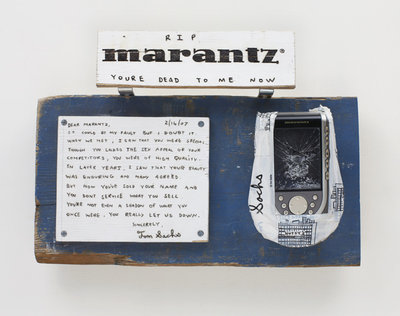 RIP
marantz®
YOU'RE DEAD TO ME NOW
DEAR MARANTZ, 2/16/07
IT COULD BE MY FAULT BUT I DOUBT IT.
WHEN WE MET, I SAW THAT YOU WERE SPECIAL.
THOUGH YOU LACKED THE SEX APPEAL OF YOUR
COMPETITORS, YOU WERE OF HIGH QUALITY.
IN LATER YEARS, I SAW THAT YOUR BEAUTY
WAS ENDURING AND MANY AGREED.
BUT NOW YOU'VE SOLD YOUR NAME AND
YOU DON'T SERVICE WHAT YOU SELL
YOU'RE NOT EVEN A SHADOW OF WHAT YOU
ONCE WERE. YOU REALLY LET US DOWN.
SINCERELY,
Tom Sachs
Sachs